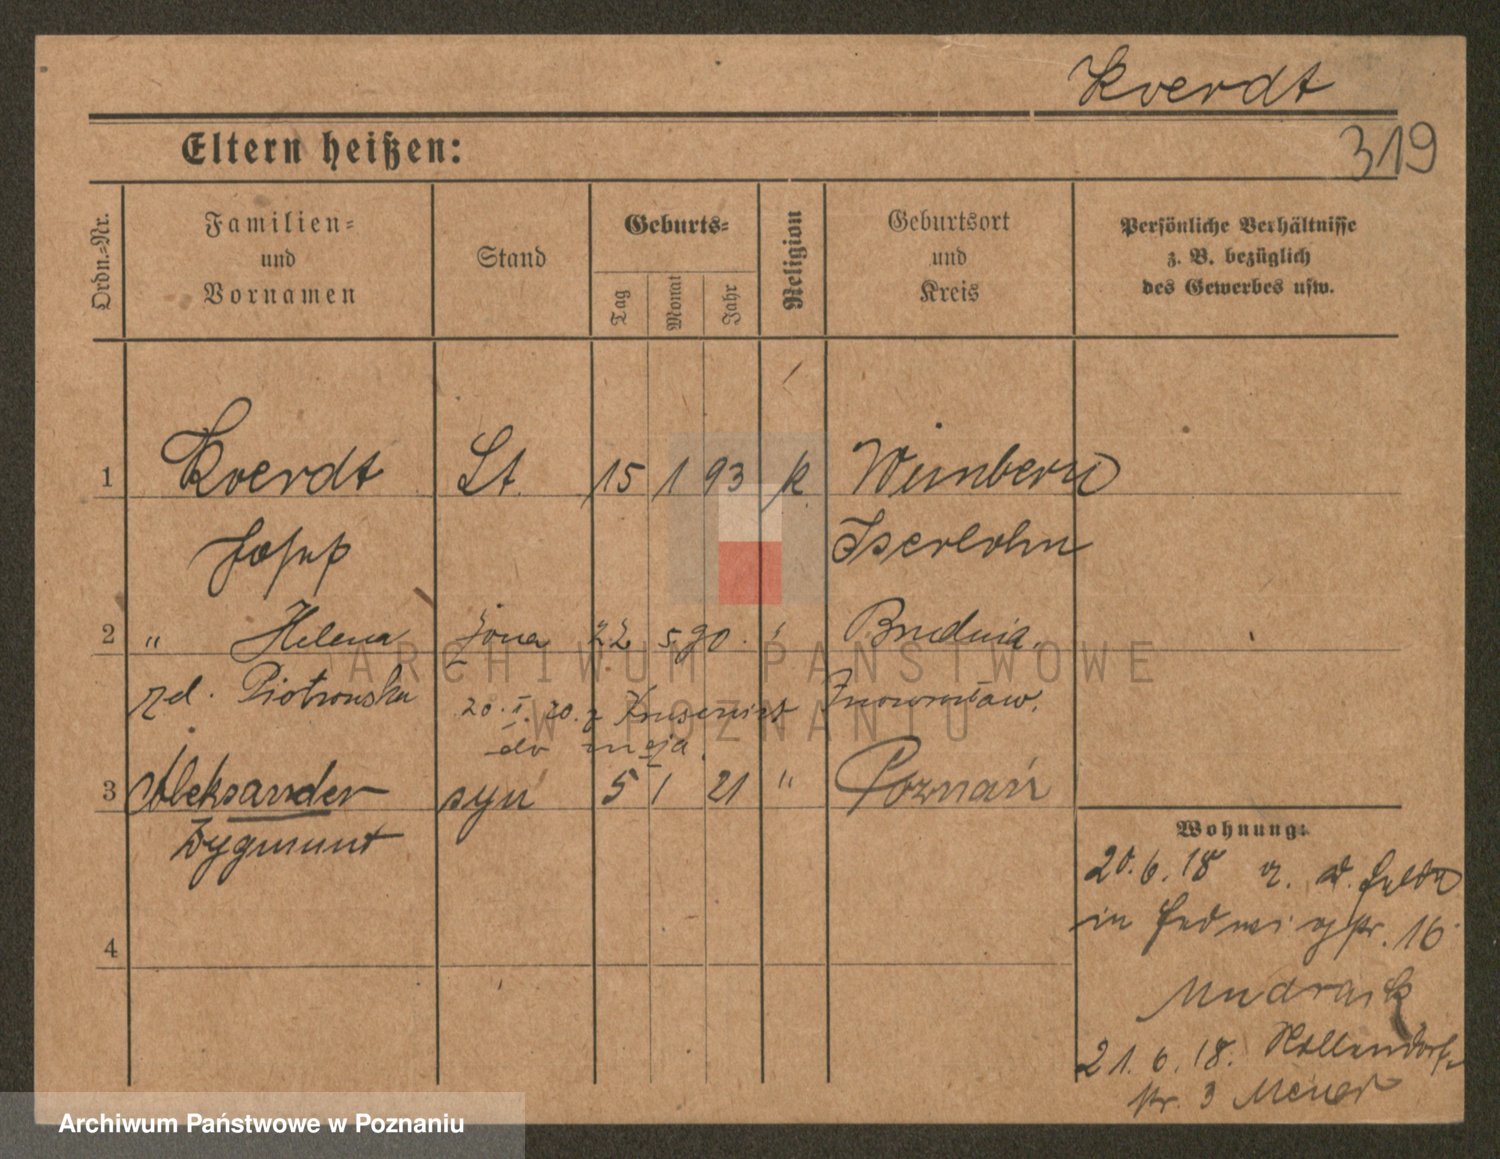 Kverdt
319
Eltern heißen:
Ordn.=Nr.
Familien=
und
Vornamen
Stand
Geburts=
Tag
Monat
Jahr
Religion
Geburtsort
und
Kreis
Persönliche Verhältnisse
z. B. bezüglich
des Gewerbes usw.
1 Kverdt St. 15 1 93 k.
Josef Iserlohn
2 " Helena żona 22 5 90 Brudnia
zd. Piotrowska 20. I. 20. z Inowrocław.
do męża.
3 Aleksander syn 5 1 21 " Poznań
Zygmunt
Wohnung:
20.6.18 v. d. Felde
in Hedwigstr. 16
4
Mudrack
21.6.18. Hollendorf-
str. 3 Meier
ARCHIWUM PAŃSTWOWE
W POZNANIU
Archiwum Państwowe w Poznaniu